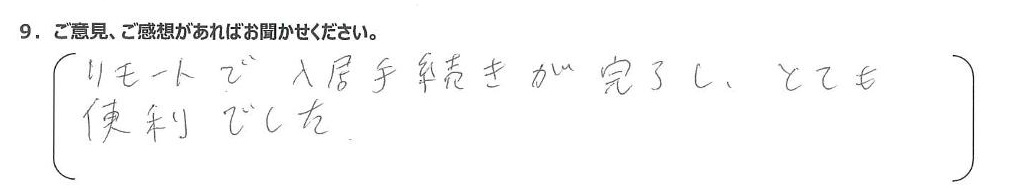 9. ご意見、ご感想があればお聞かせください。
リモートで入居手続きが完了し、とても
便利でした.